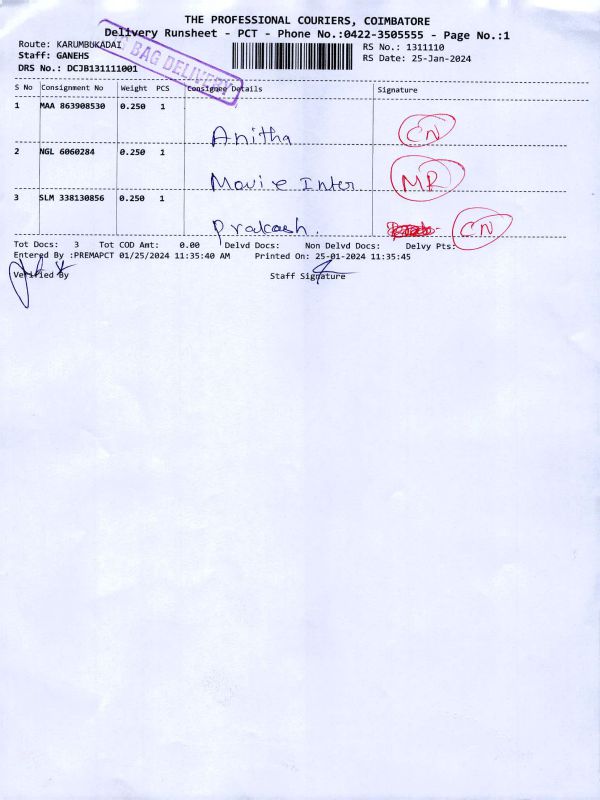 THE PROFESSIONAL COURIERS, COIMBATORE
Delivery Runsheet - PCT - Phone No.:0422-3505555 - Page No.:1
Route: KARUMBUKADAI
RS No.: 1311110
Staff: GANEHS
RS Date: 25-Jan-2024
DRS No.: DCJB131111001
BAG DELIVERY
S No Consignment No Weight PCS Consignee Details Signature
1 MAA 863908530 0.250 1
Anitha CN
2 NGL 6060284 0.250 1
Movie Inter MR
3 SLM 338130856 0.250 1
Prakash. CN
Tot Docs: 3 Tot COD Amt: 0.00 Delvd Docs: Non Delvd Docs: Delvy Pts:
Entered By :PREMAPCT 01/25/2024 11:35:40 AM Printed On: 25-01-2024 11:35:45
Verified By Staff Signature